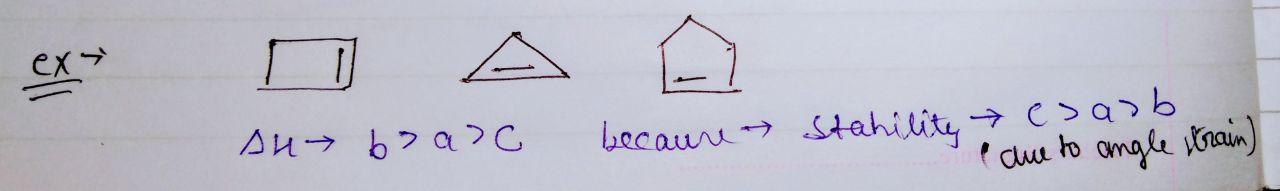 ex →
ΔH → b > a > c because → stability → c > a > b
(due to angle strain)